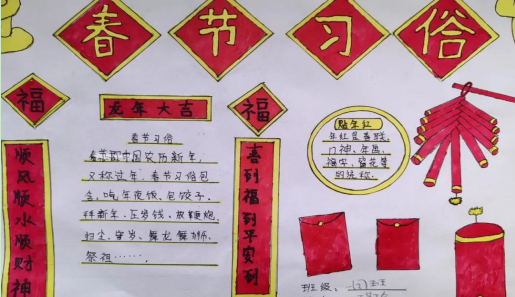 春节习俗
福
龙年大吉
福
顺风顺水顺财神
喜到福到平安到
春节习俗
春节即中国农历新年，
又称过年，春节习俗包
含，吃年夜饭、包饺子、
拜新年、压岁钱、放鞭炮，
扫尘、守岁、舞龙舞狮、
祭祖……。
贴年红
年红是春联，
门神、年画，
福字、窗花等
的统称。
班级：一(1)班